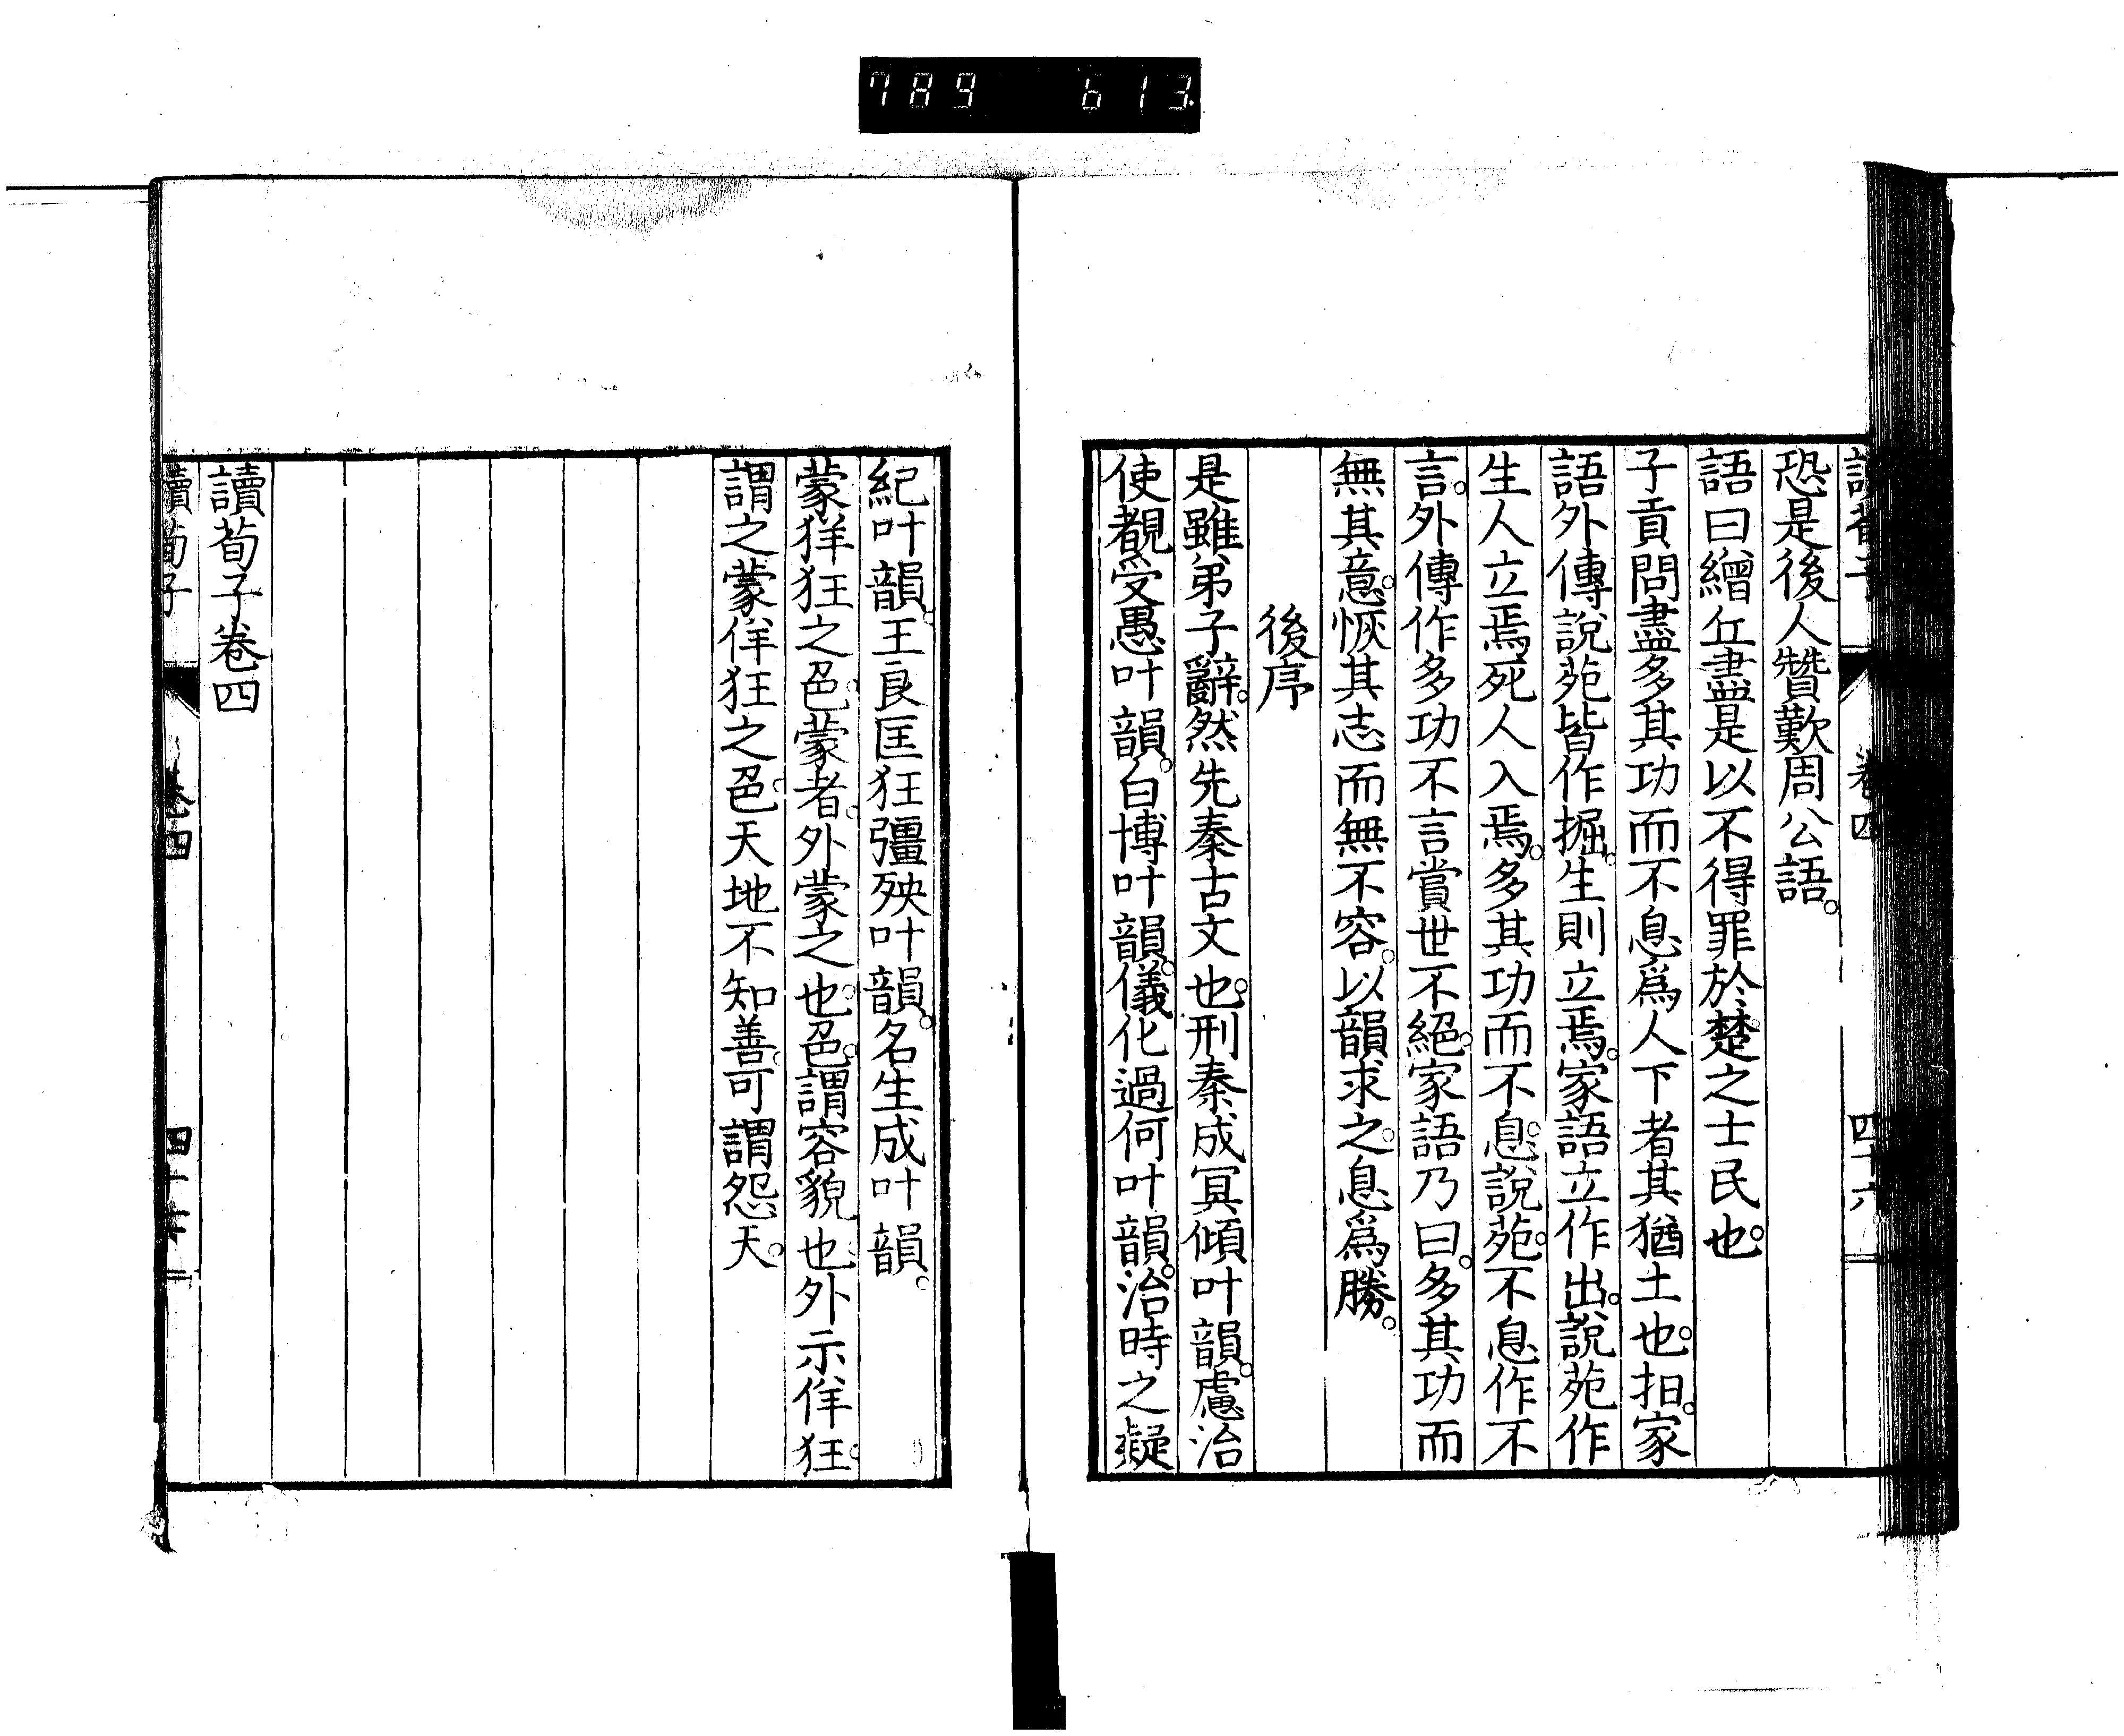 789 613
讀荀子 卷四 四十六
恐是後人贊歎周公語。
語曰繒丘盡是以不得罪於楚之士民也。
子貢問盡多其功而不息爲人下者其猶土也。抇。家
語外傳說苑皆作掘。生則立焉。家語立作出。說苑作
生人立焉死人入焉。多其功而不息。說苑。不息作不
言。外傳作多功不言賞世不絕。家語乃曰。多其功而
無其意。恢其志而無不容。以韻求之。息爲勝。
後序
是雖弟子辭。然先秦古文也。刑秦成冥傾叶韻。慮治
使覩受愚叶韻。白博叶韻。儀化過何叶韻。治時之疑
紀叶韻。王良匡狂彊殃叶韻。名生成叶韻。
蒙佯狂之色。蒙者。外蒙之也。色。謂容貌也外示佯狂。
謂之蒙佯狂之色。天地不知善。可謂怨天。
讀荀子卷四
讀荀子 卷四